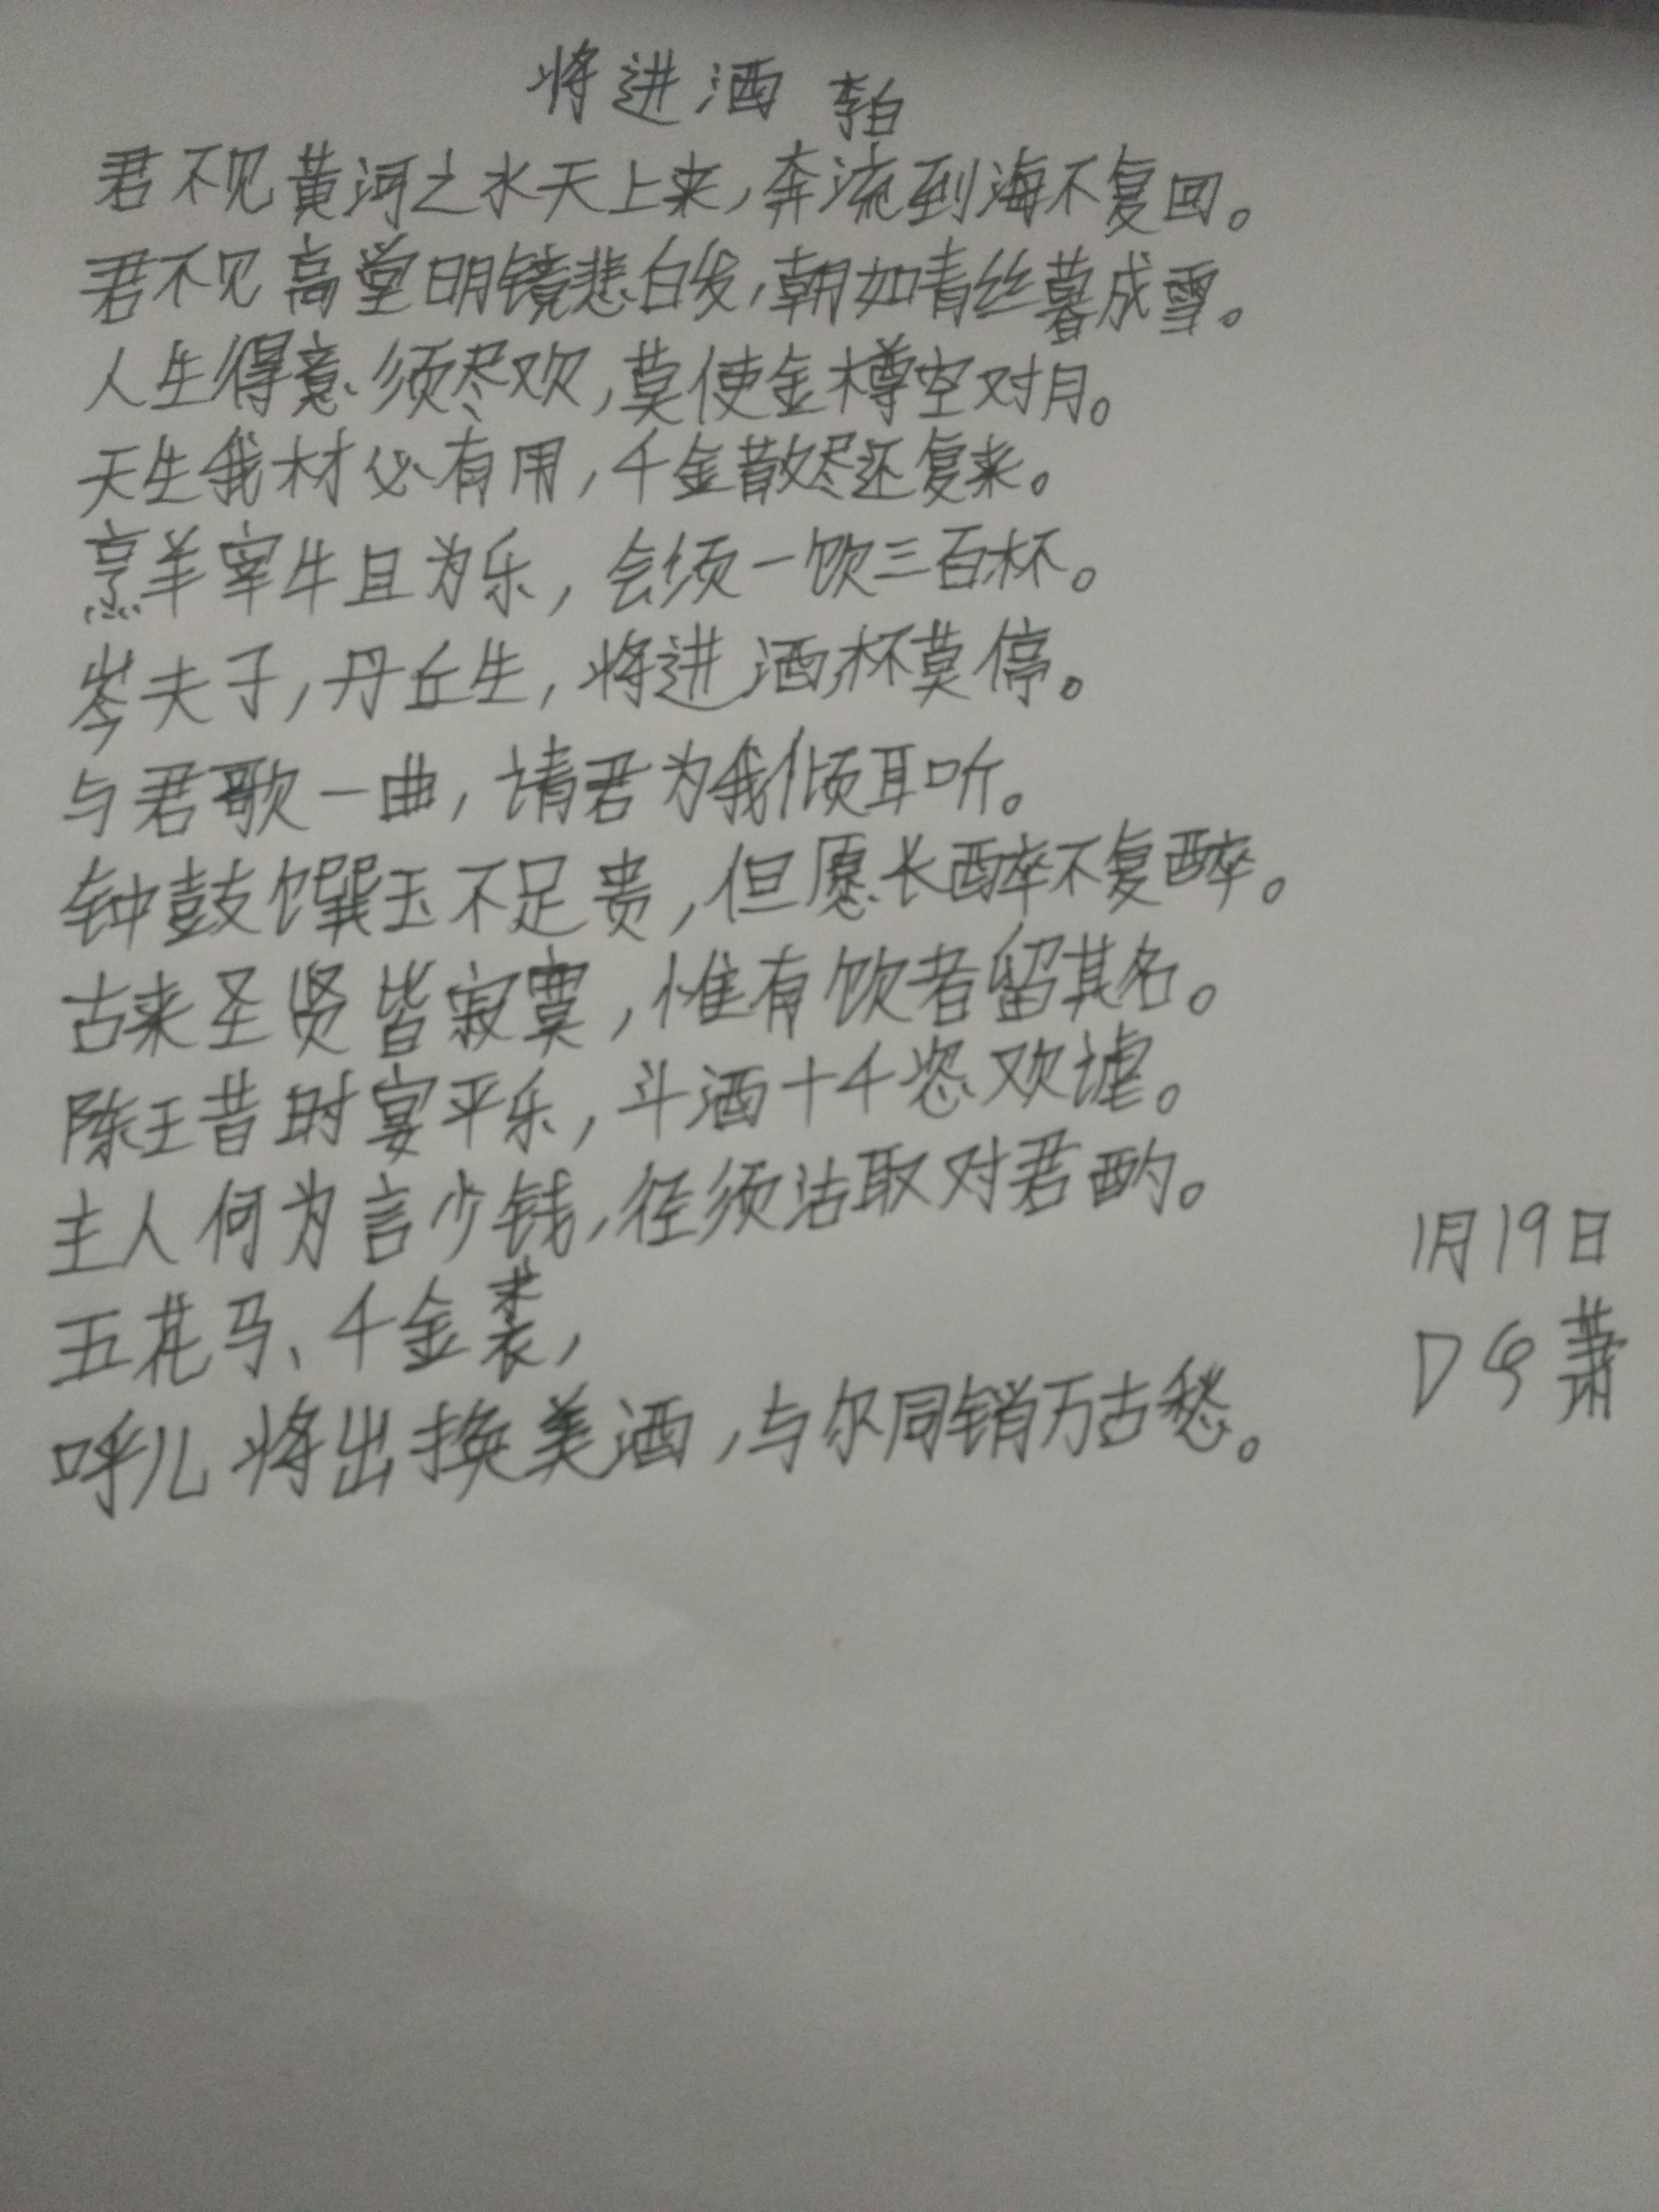 将进酒 李白
君不见黄河之水天上来,奔流到海不复回。
君不见高堂明镜悲白发,朝如青丝暮成雪。
人生得意须尽欢,莫使金樽空对月。
天生我材必有用,千金散尽还复来。
烹羊宰牛且为乐,会须一饮三百杯。
岑夫子,丹丘生,将进酒,杯莫停。
与君歌一曲,请君为我倾耳听。
钟鼓馔玉不足贵,但愿长醉不复醉。
古来圣贤皆寂寞,惟有饮者留其名。
陈王昔时宴平乐,斗酒十千恣欢谑。
主人何为言少钱,径须沽取对君酌。
五花马、千金裘,
呼儿将出换美酒,与尔同销万古愁。
1月19日
萧